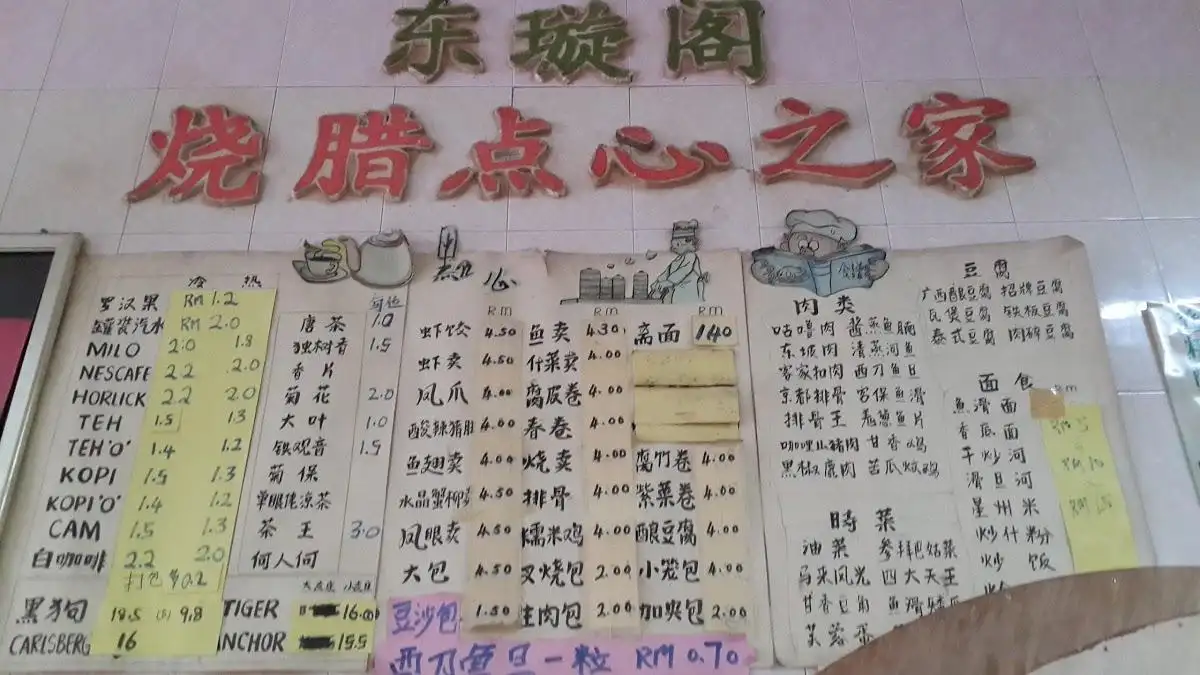 东璇阁
烧腊点心之家
冷 热
罗汉果 RM 1.2
RM 2.0
MILO 2.0 1.8
NESCAFE 2.2 2.0
HORLICK 2.2 2.0
TEH 1.5 1.3
TEH 'O' 1.4 1.2
KOPI 1.5 1.3
KOPI 'O' 1.4 1.2
CAM 1.5 1.3
白咖啡 2.2 2.0
打包 0.2
黑狗 18.5 (S) 9.8
CARLSBERG 16
唐茶 1.0
独树香 1.5
香片
菊花 2.0
大叶 1.0
铁观音 1.5
菊保
茶王 3.0
何人何
TIGER 16.00
ANCHOR 15.5
点心
Rm
虾饺 4.50
虾卖 4.50
凤爪 4.00
酸辣猪 4.00
鱼翅卖 4.00
水晶蟹柳 4.50
凤眼卖 4.50
大包 4.50
豆沙包 1.50
Rm
鱼卖 4.30
什菜卖 4.00
腐皮卷 4.00
春卷 4.00
烧卖 4.00
排骨 4.00
糯米鸡 4.00
叉烧包 2.00
生肉包 2.00
Rm
斋面 1.40
腐竹卷 4.00
紫菜卷 4.00
酿豆腐 4.00
小笼包 4.00
加央包 2.00
西刀鱼旦一粒 RM 0.70
肉类
咕噜肉 酱蒸鱼腩
东坡肉 清蒸河鱼
客家扣肉 西刀鱼旦
京都排骨 宫保鱼滑
排骨王 姜葱鱼片
咖哩山猪肉 甘香鸡
黑椒鹿肉 苦瓜炆鸡
時菜
油菜
马来风光 四大天王
甘香豆角
芙蓉蛋
豆腐
广西酿豆腐 招牌豆腐
瓦煲豆腐 铁板豆腐
泰式豆腐 肉碎豆腐
面食
Rm
魚滑面
香底面
干炒河
滑旦河
星州米
炒什粉
炒饭